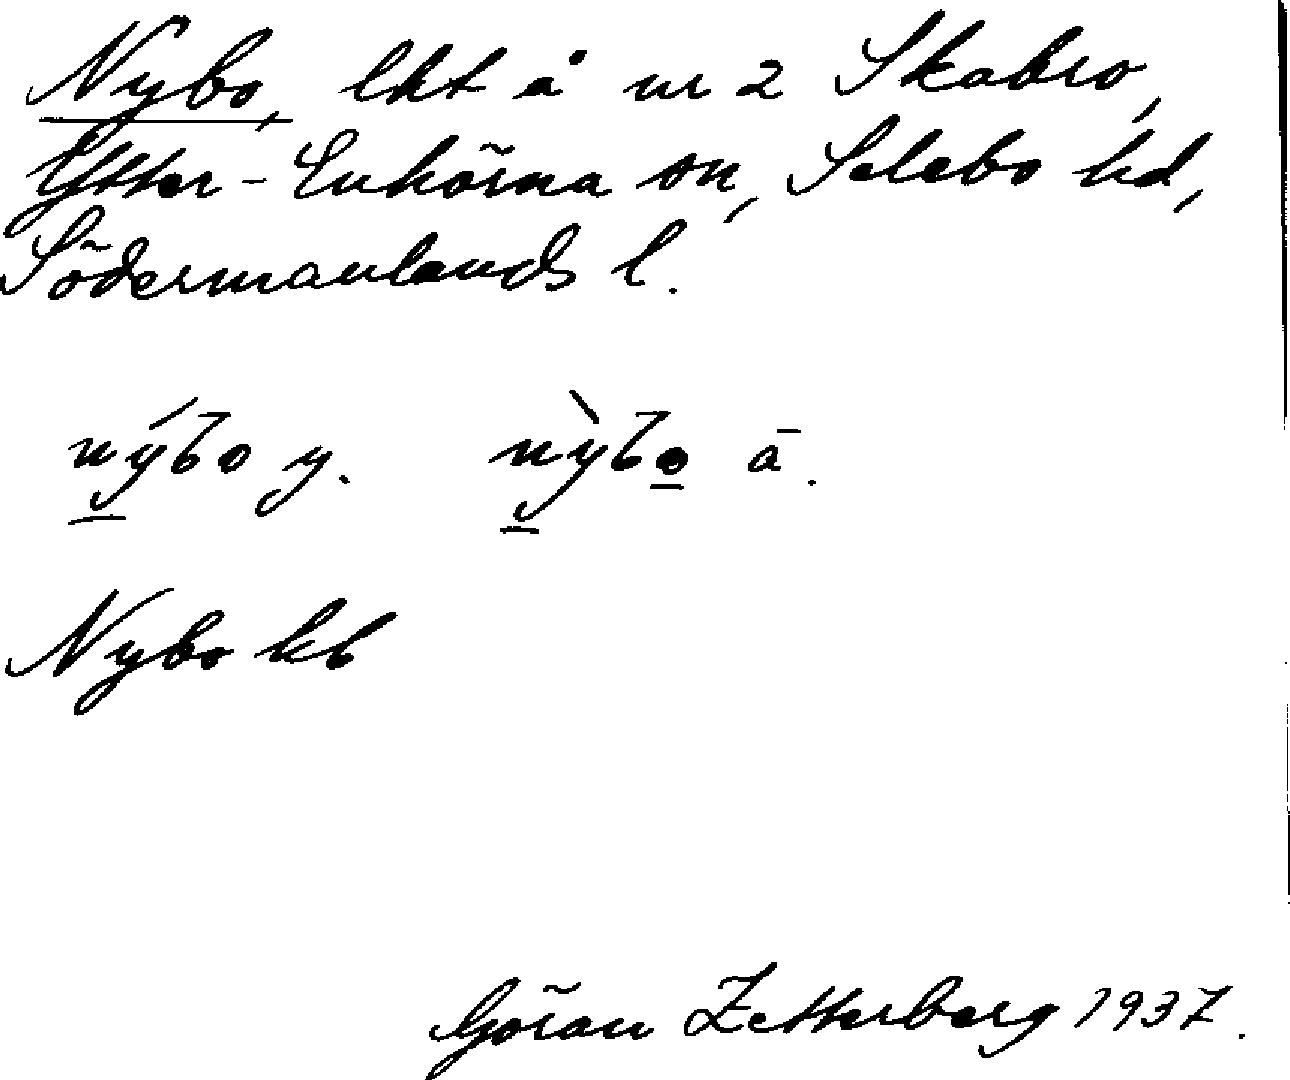 Nybo, lht å nr 2 Skabro,
Ytter-Enhörna sn, Selebo hd,
Södermanlands l.
nýbo y. nỳbo ā.
Nybo kb
Göran Zetterberg 1937.